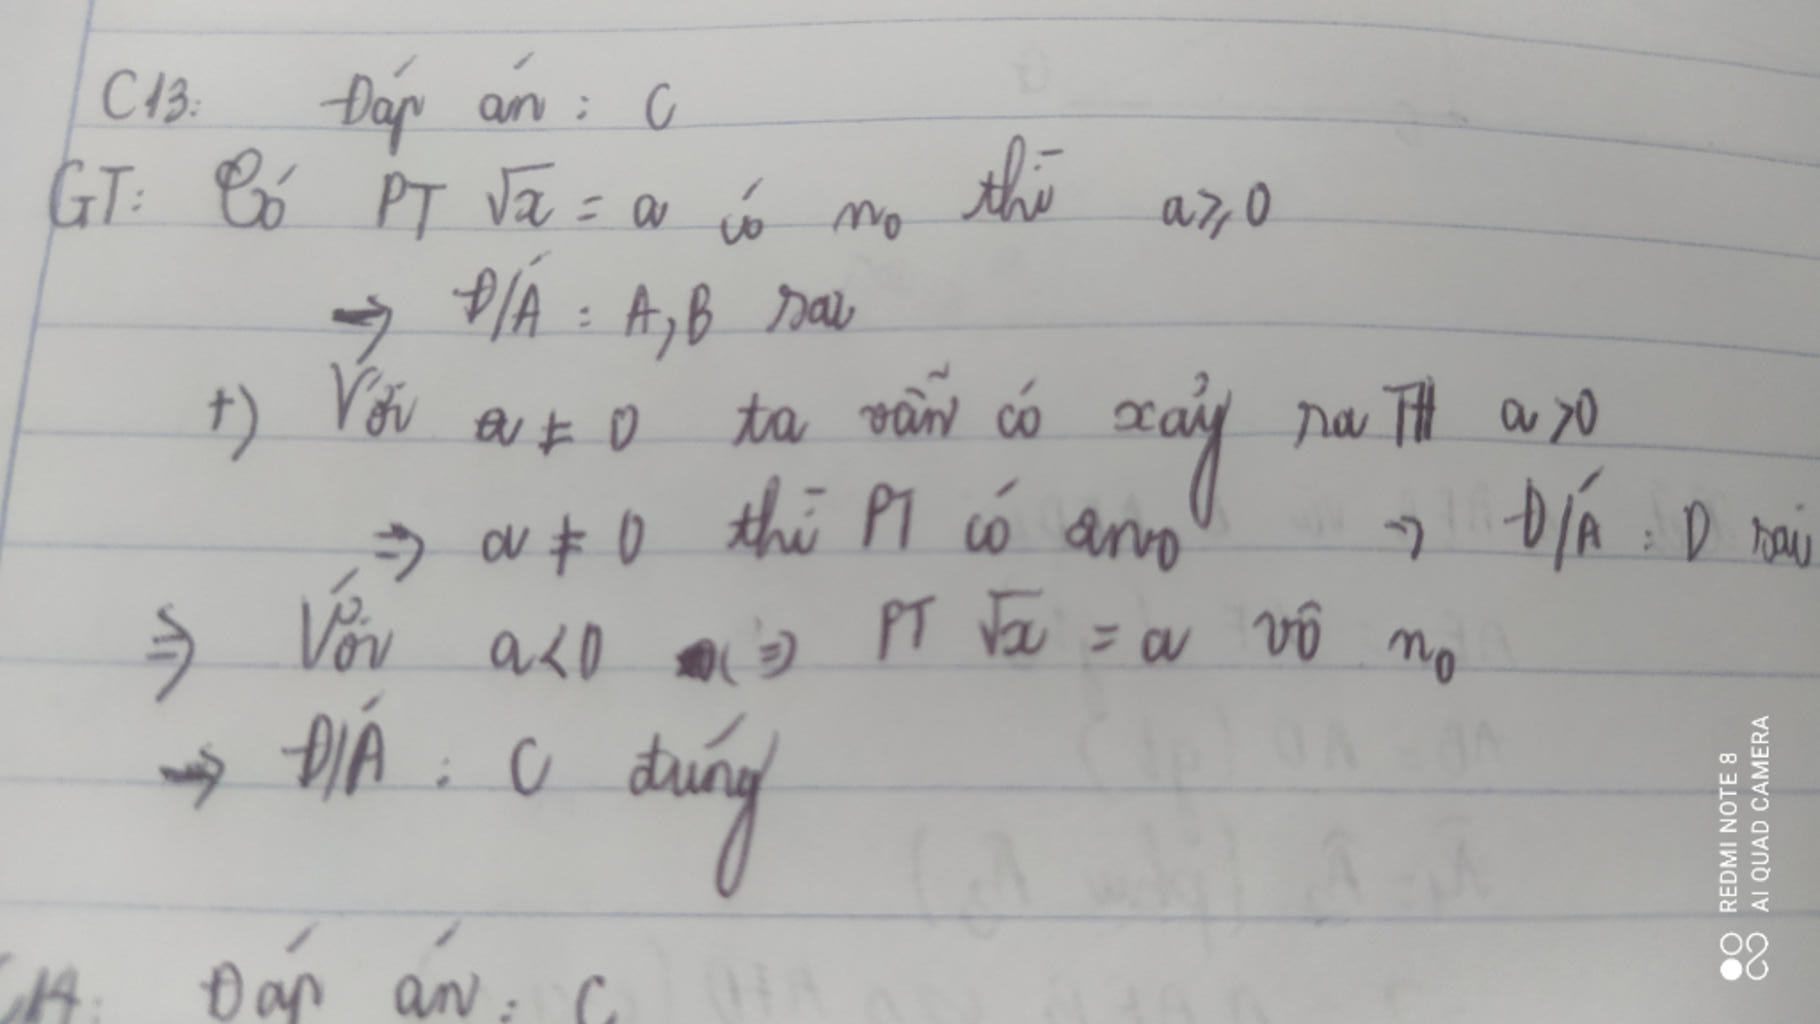 C13: Đáp án: C
GT: Có PT √x = a có n₀ thì a ⩾ 0
→ Đ/Á: A, B sai
+) Với a ≠ 0 ta vẫn có xảy ra TH a > 0
⇒ a ≠ 0 thì PT có n₀ → Đ/Á: D sai
⇒ Với a < 0 ⇒ PT √x = a vô n₀
→ Đ/Á: C đúng
C14: Đáp án: C
REDMI NOTE 8
AI QUAD CAMERA